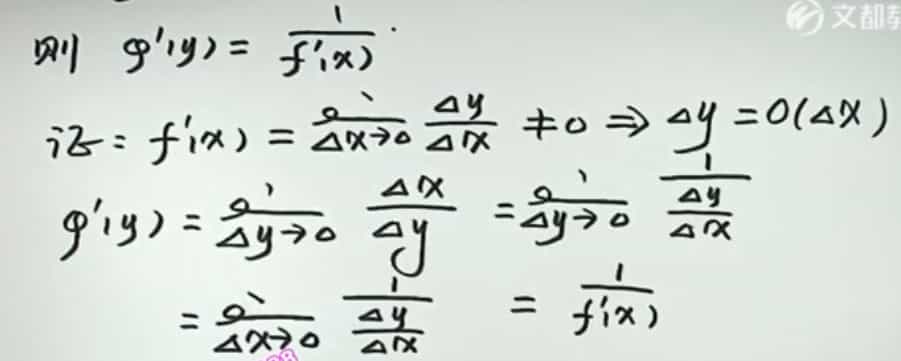 文都教
则 φ'(y) = 1/f'(x).
证: f'(x) = lim Δx→0 Δy/Δx ≠ 0 ⇒ Δy = O(Δx)
φ'(y) = lim Δy→0 Δx/Δy = lim Δy→0 1/(Δy/Δx)
= lim Δx→0 1/(Δy/Δx) = 1/f'(x)